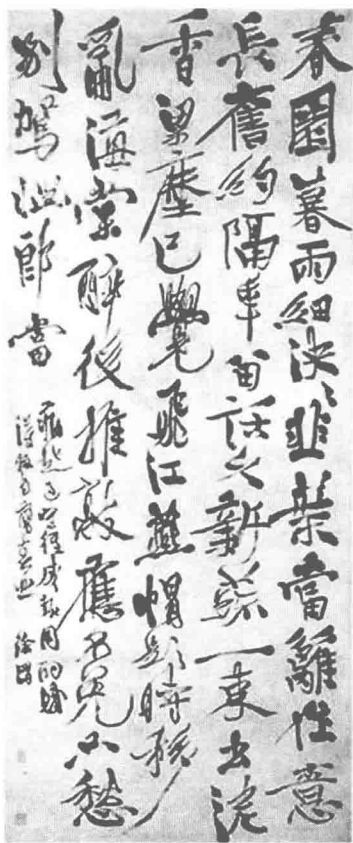 春園暮雨細泱〻韭葉當籬作意
長舊約隔年留話久新蔬一束出泥
香梁塵已覺飛江燕帽影時移
亂海棠醉後推敲應不免不愁
別駕惱郎當
徐渭